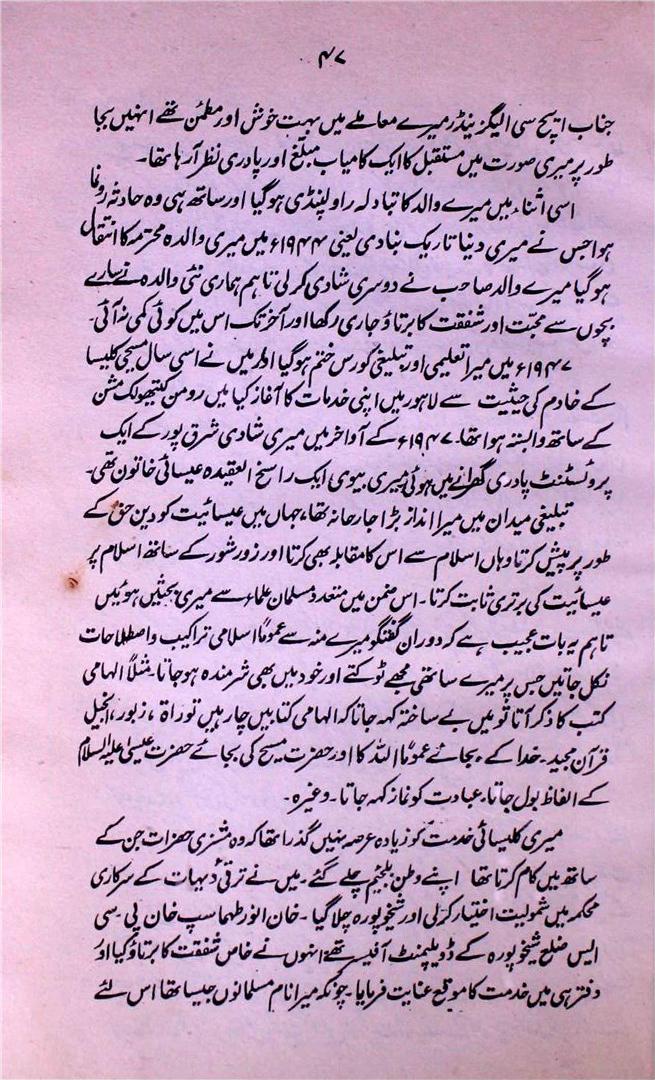 ۴۷
جناب ایچ سی الیگزینڈر میرے معاملے میں بہت خوش اور مطمئن تھے انہیں بجا
طور پر میری صورت میں مستقبل کا ایک کامیاب مبلّغ اور پادری نظر آ رہا تھا۔
اسی اثناء میں میرے والد کا تبادلہ راولپنڈی ہو گیا اور ساتھ ہی وہ حادثہ رونما
ہوا جس نے میری دنیا تاریک بنا دی یعنی ۱۹۴۴ء میں میری والدہ محترمہ کا انتقال
ہو گیا میرے والد صاحب نے دوسری شادی کر لی تاہم ہماری نئی والدہ نے سارے
بچوں سے محبّت اور شفقت کا برتاؤ جاری رکھا اور آخر تک اس میں کوئی کمی نہ آئی۔
۱۹۴۷ء میں میرا تعلیمی اور تبلیغی کورس ختم ہو گیا اور میں نے اسی سال مسیحی کلیسا
کے خادم کی حیثیت سے لاہور میں اپنی خدمات کا آغاز کیا میں رومن کیتھولک مشن
کے ساتھ وابستہ ہوا تھا۔ ۱۹۴۷ء کے آواخر میں میری شادی شرق پور کے ایک
پروٹسٹنٹ پادری گھرانے میں ہوئی میری بیوی ایک راسخ العقیدہ عیسائی خاتون تھی۔
تبلیغی میدان میں میرا انداز بڑا جارحانہ تھا، جہاں میں عیسائیت کو دین حق کے
طور پر پیش کرتا وہاں اسلام سے اس کا مقابلہ بھی کرتا اور زور شور کے ساتھ اسلام پر
عیسائیت کی برتری ثابت کرتا۔ اس ضمن میں متعدد مسلمان علماء سے میری بحثیں ہوئیں
تاہم یہ بات عجیب ہے کہ دوران گفتگو میرے منہ سے عموماً اسلامی تراکیب و اصطلاحات
نکل جاتیں جس پر میرے ساتھی مجھے ٹوکتے اور خود میں بھی شرمندہ ہو جاتا۔ مثلاً الہامی
کتب کا ذکر آتا تو میں بے ساختہ کہہ جاتا کہ الہامی کتابیں چار ہیں توراۃ ، زبور ، انجیل
قرآن مجید۔ خدا کے بجائے عموماً اللہ کا اور حضرت مسیح کی بجائے حضرت عیسیٰ علیہ السلام
کے الفاظ بول جاتا۔ عبادت کو نماز کہہ جاتا۔ وغیرہ۔
میری کلیسائی خدمت کو زیادہ عرصہ نہیں گذرا تھا کہ وہ مشنری حضرات جن کے
ساتھ میں کام کرتا تھا اپنے وطن بلجیم چلے گئے۔ میں نے ترقی دیہات کے سرکاری
محکمہ میں شمولیت اختیار کر لی اور شیخوپورہ چلا گیا۔ خان انور طہماسپ خان پی۔سی
ایس ضلع شیخوپورہ کے ڈویلپمنٹ آفیسر تھے انہوں نے خاص شفقت کا برتاؤ کیا اور
دفتر ہی میں خدمت کا موقع عنایت فرمایا۔ چونکہ میرا نام مسلمانوں جیسا تھا اس لئے